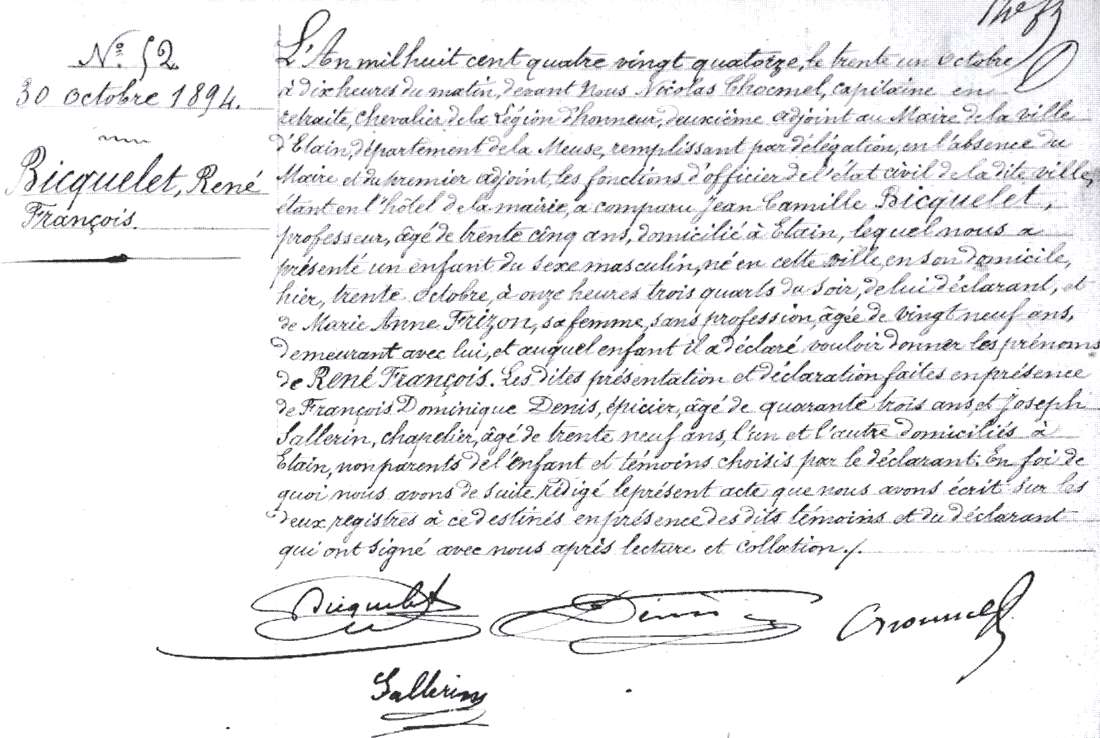 N° 52
30 octobre 1894.
Bicquelet, René
François.
L'An mil huit cent quatre vingt quatorze, le trente un octobre
à dix heures du matin, devant Nous Nicolas Chocmel, capitaine en
retraite, chevalier de la Légion d'honneur, deuxième adjoint au Maire de la ville
d'Etain, département de la Meuse, remplissant par délégation, en l'absence du
Maire et du premier adjoint, les fonctions d'officier de l'état civil de la dite ville,
étant en l'hôtel de la mairie, a comparu Jean Camille Bicquelet,
professeur, âgé de trente cinq ans, domicilié à Etain, lequel nous a
présenté un enfant du sexe masculin, né en cette ville, en son domicile,
hier, trente octobre, à onze heures trois quarts du soir, de lui déclarant, et
de Marie Anne Frizon, sa femme, sans profession, âgée de vingt neuf ans,
demeurant avec lui, et auquel enfant il a déclaré vouloir donner les prénoms
de René François. Les dites présentation et déclaration faites en présence
de François Dominique Denis, épicier, âgé de quarante trois ans et Joseph
Sallerin, chapelier, âgé de trente neuf ans, l'un et l'autre domiciliés à
Etain, non parents de l'enfant et témoins choisis par le déclarant. En foi de
quoi nous avons de suite rédigé le présent acte que nous avons écrit sur les
deux registres à ce destinés en présence des dits témoins et du déclarant
qui ont signé avec nous après lecture et collation ./.
Bicquelet Denis Chocmel
Sallerin